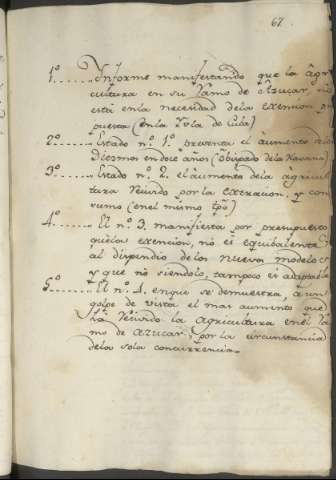 67.
1º...... Ynforme manifestando que la Agri
cultura en su Ramo de Azucar, no
está en la necesidad dela exencion,
puesta (en la Ysla de Cuba)
2º...... Estado nº. 1º. presenta el aumento de
Diezmos en doce años (Obispado dela Havana)
3º...... Estado nº 2. el aumento dela agricul
tura Recivido por la extracion, y con
sumo (en el mismo tpô)
4º...... El nº 3. manifiesta por presupuesto
quela exencion, no es equibalente
al dispendio de los nuevos modelos,
y que no siendolo, tampoco es adaptable
5º...... El nº 4. enque se demuestra, á un
golpe de vista el mas aumento que
há Recivido la Agricultura en el Ra
mo de Azucar, por la circunstancia
dela sola concurrencia.